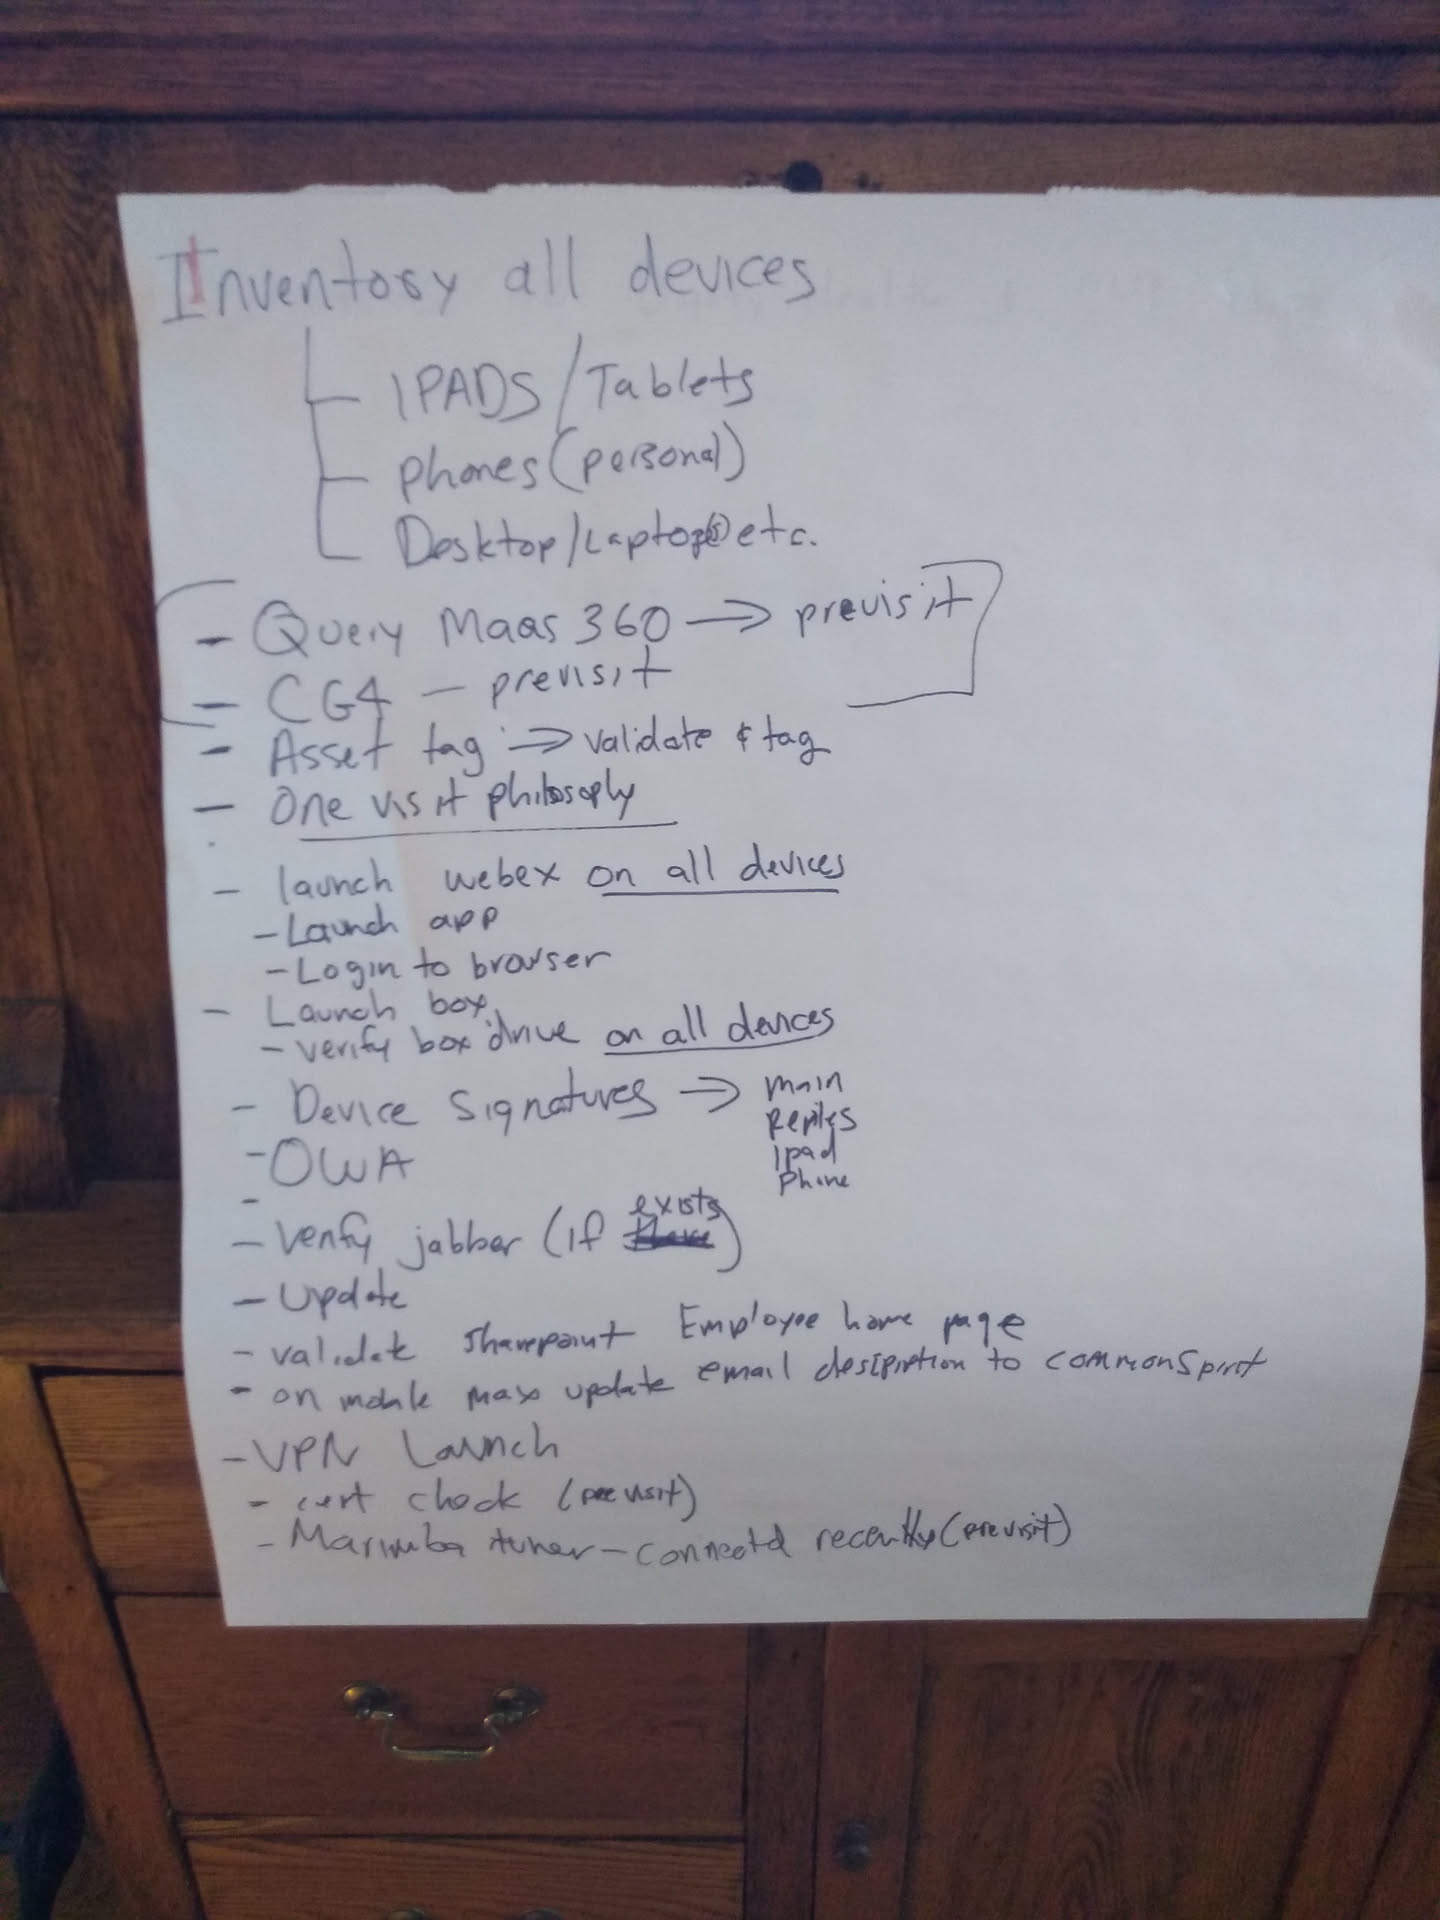 Inventory all devices
IPADS/Tablets
phones (personal)
Desktop/Laptop(s) etc.
- Query Maas 360 → previsit
- CG4 - previsit
- Asset tag → validate & tag
- One visit philosophy
- launch webex on all devices
- Launch app
- Login to browser
- Launch box
- verify box drive on all devices
- Device Signatures → main
Replies
Ipad
Phone
- OWA
-
- Verify jabber (if exists)
- Update
- validate sharepoint Employee home page
- on mobile update email desciption to commonSpirit
- VPN Launch
- cert check (previsit)
- Marimba tuner - connected recently (previsit)